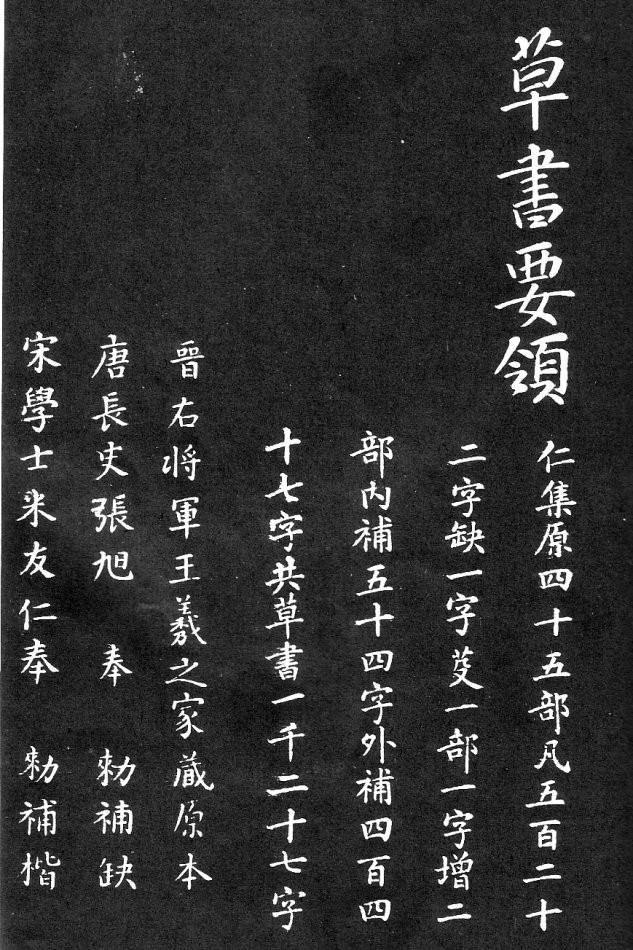 草書要領
仁集原四十五部凡五百二十
二字缺一字芟一部一字增二
部内補五十四字外補四百四
十七字共草書一千二十七字
晋右将軍王羲之家藏原本
唐長史張旭 奉 勅補缺
宋學士米友仁奉 勅補楷